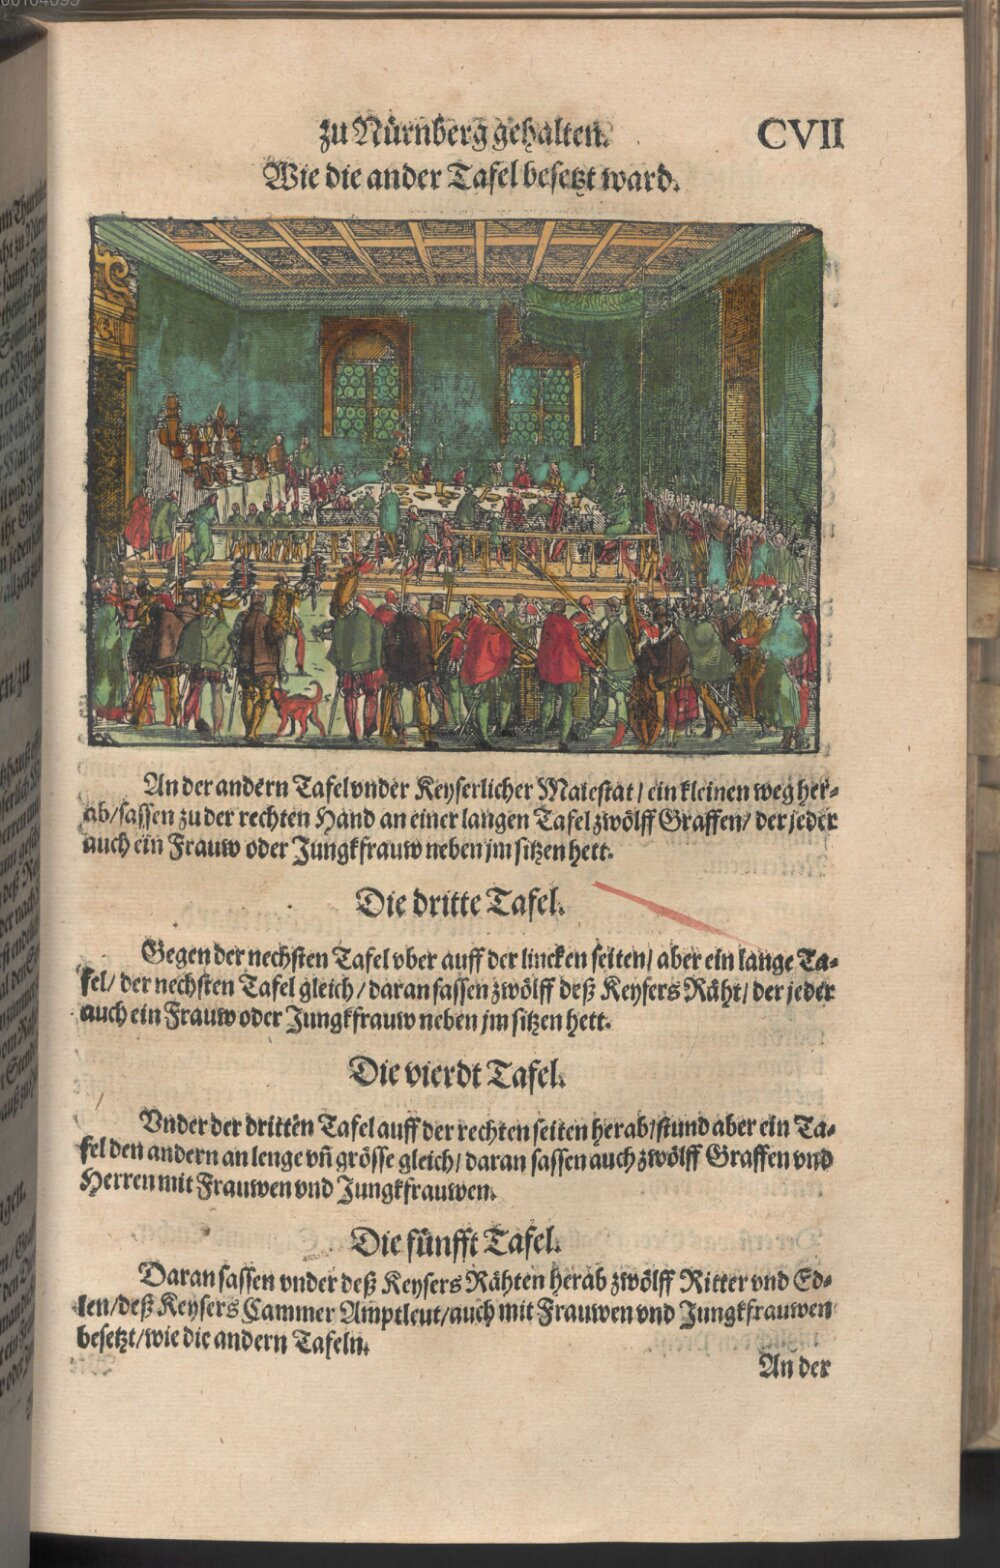 zu Nürnberg gehalten. CVII
Wie die ander Tafel besetzt ward.
An der andern Tafel vnder Keyserlicher Maiestat / ein kleinen weg her-
ab / sassen zu der rechten Hand an einer langen Tafel zwölff Graffen / der jeder
auch ein Frauw oder Jungkfrauw neben jm sitzen hett.
Die dritte Tafel.
Gegen der nechsten Tafel vber auff der lincken seiten / aber ein lange Ta-
fel / der nechsten Tafel gleich / daran sassen zwölff deß Keysers Räht / der jeder
auch ein Frauw oder Jungkfrauw neben jm sitzen hett.
Die vierdt Tafel.
Vnder der dritten Tafel auff der rechten seiten herab / stund aber ein Ta-
fel den andern an lenge vñ grösse gleich / daran sassen auch zwölff Graffen vnd
Herren mit Frauwen vnd Jungkfrauwen.
Die fünfft Tafel.
Daran sassen vnder deß Keysers Rähten herab zwölff Ritter vnd Ed-
len / deß Keysers Cammer Amptleut / auch mit Frauwen vnd Jungkfrauwen
besetzt / wie die andern Tafeln.
An der